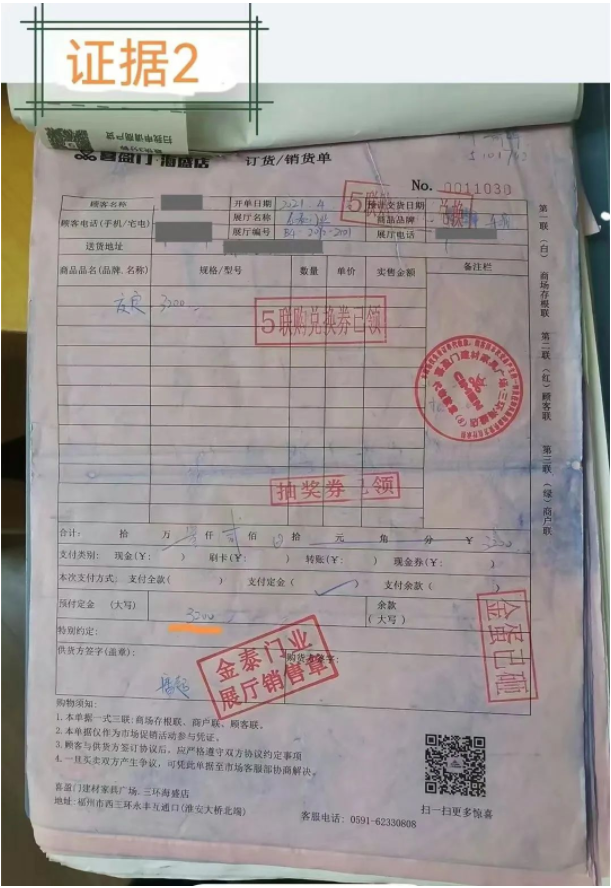 证据2
扫我申请商户贷
喜盈门·海盛店 订货/销货单
No. 0011030
顾客名称 开单日期 2021.4 预计交货日期
顾客电话(手机/宅电) 展厅名称 商品品牌
展厅编号 展厅电话
送货地址
商品品名(品牌、名称) 规格/型号 数量 单价 实售金额 备注栏
3200
5联购兑换券已领
抽奖券已领
合计: 拾 万 仟 贰 佰 拾 元 角 分 ¥ 3200
支付类别: 现金(¥: ) 刷卡(¥: ) 转账(¥: ) 现金券(¥: )
本次支付方式: 支付全款( ) 支付定金( ✓ ) 支付余款( )
预付定金 (大写) 3200 余款(大写)
特别约定:
供货方签字(盖章): 购货方签字:
金泰门业
展厅销售章
金蛋已砸
购物须知:
1.本单据一式三联:商场存根联、商户联、顾客联。
2.本单据仅作为市场促销活动参与凭证。
3.顾客与供货方签订协议后、应严格遵守双方协议约定事项
4.一旦买卖双方产生争议,可凭此单据至市场客服部协商解决。
喜盈门建材家具广场.三环海盛店
地址:福州市西三环永丰互通口(淮安大桥北端)
客服电话: 0591-62330808
扫一扫更多惊喜
第一联(白)商场存根联
第二联(红)顾客联
第三联(绿)商户联
喜盈门建材家具广场三环海盛店